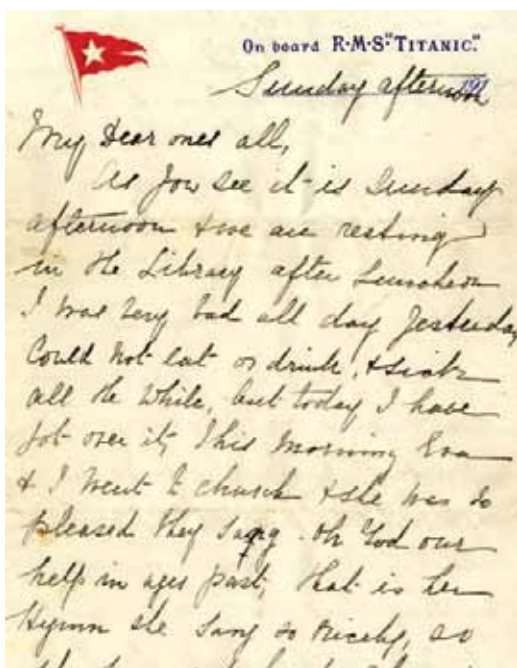 On board R·M·S "TITANIC."
Sunday afternoon
My Dear ones all,
As you see it is Sunday
afternoon & we are resting
in the Library after Luncheon
I was very bad all day Yesterday
Could not eat or drink, & sick
all the while, but today I have
got over it, This morning Eva
& I went to church & she was so
pleased they sang Oh God our
help in ages past, that is her
Hymn she sang so nicely, so